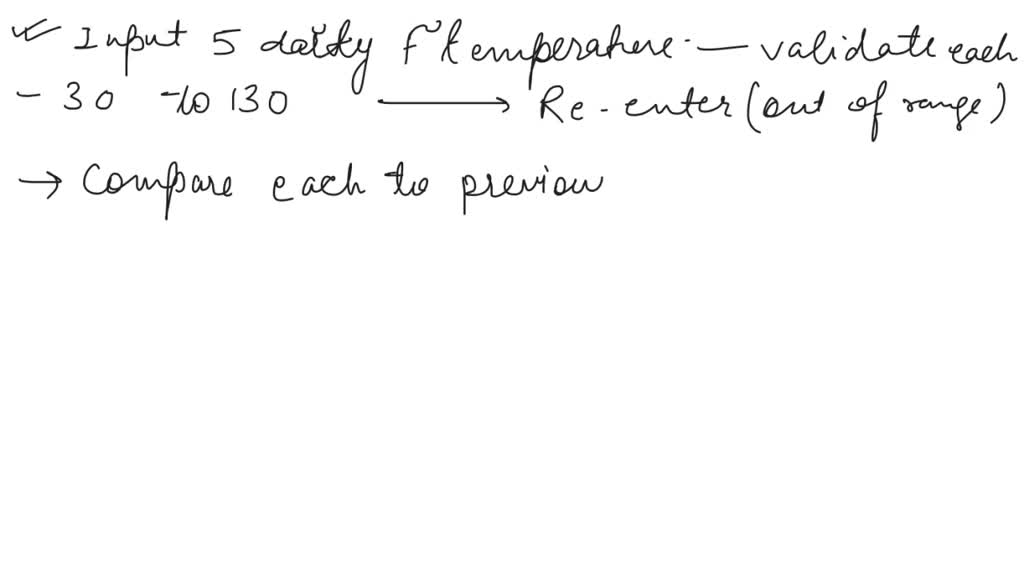 Input 5 daily F° temperature - validate each
- 30 to 130 → Re-enter (out of range)
→ Compare each to previou